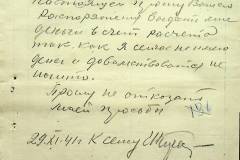 настоящем прошу Вашего
Распоряжения выдать мне
деньги в счет расчета
так. как я сейчас не имею
денег и довольствоваться не
Прошу не отказать
моей просьбы
29.XI.41г. К сему